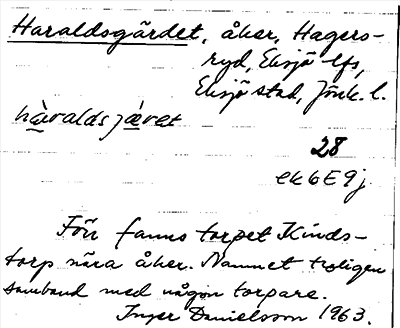 Haraldsgärdet, åker, Hagers-
ryd, Eksjö lfs,
Eksjö stad, Jönk. l.
hàraldsjæ̀ret
28
ek6E9j
Förr fanns torpet Kinds-
torp nära åker. Namnet troligen
samband med någon torpare.
Inger Danielsson 1963.